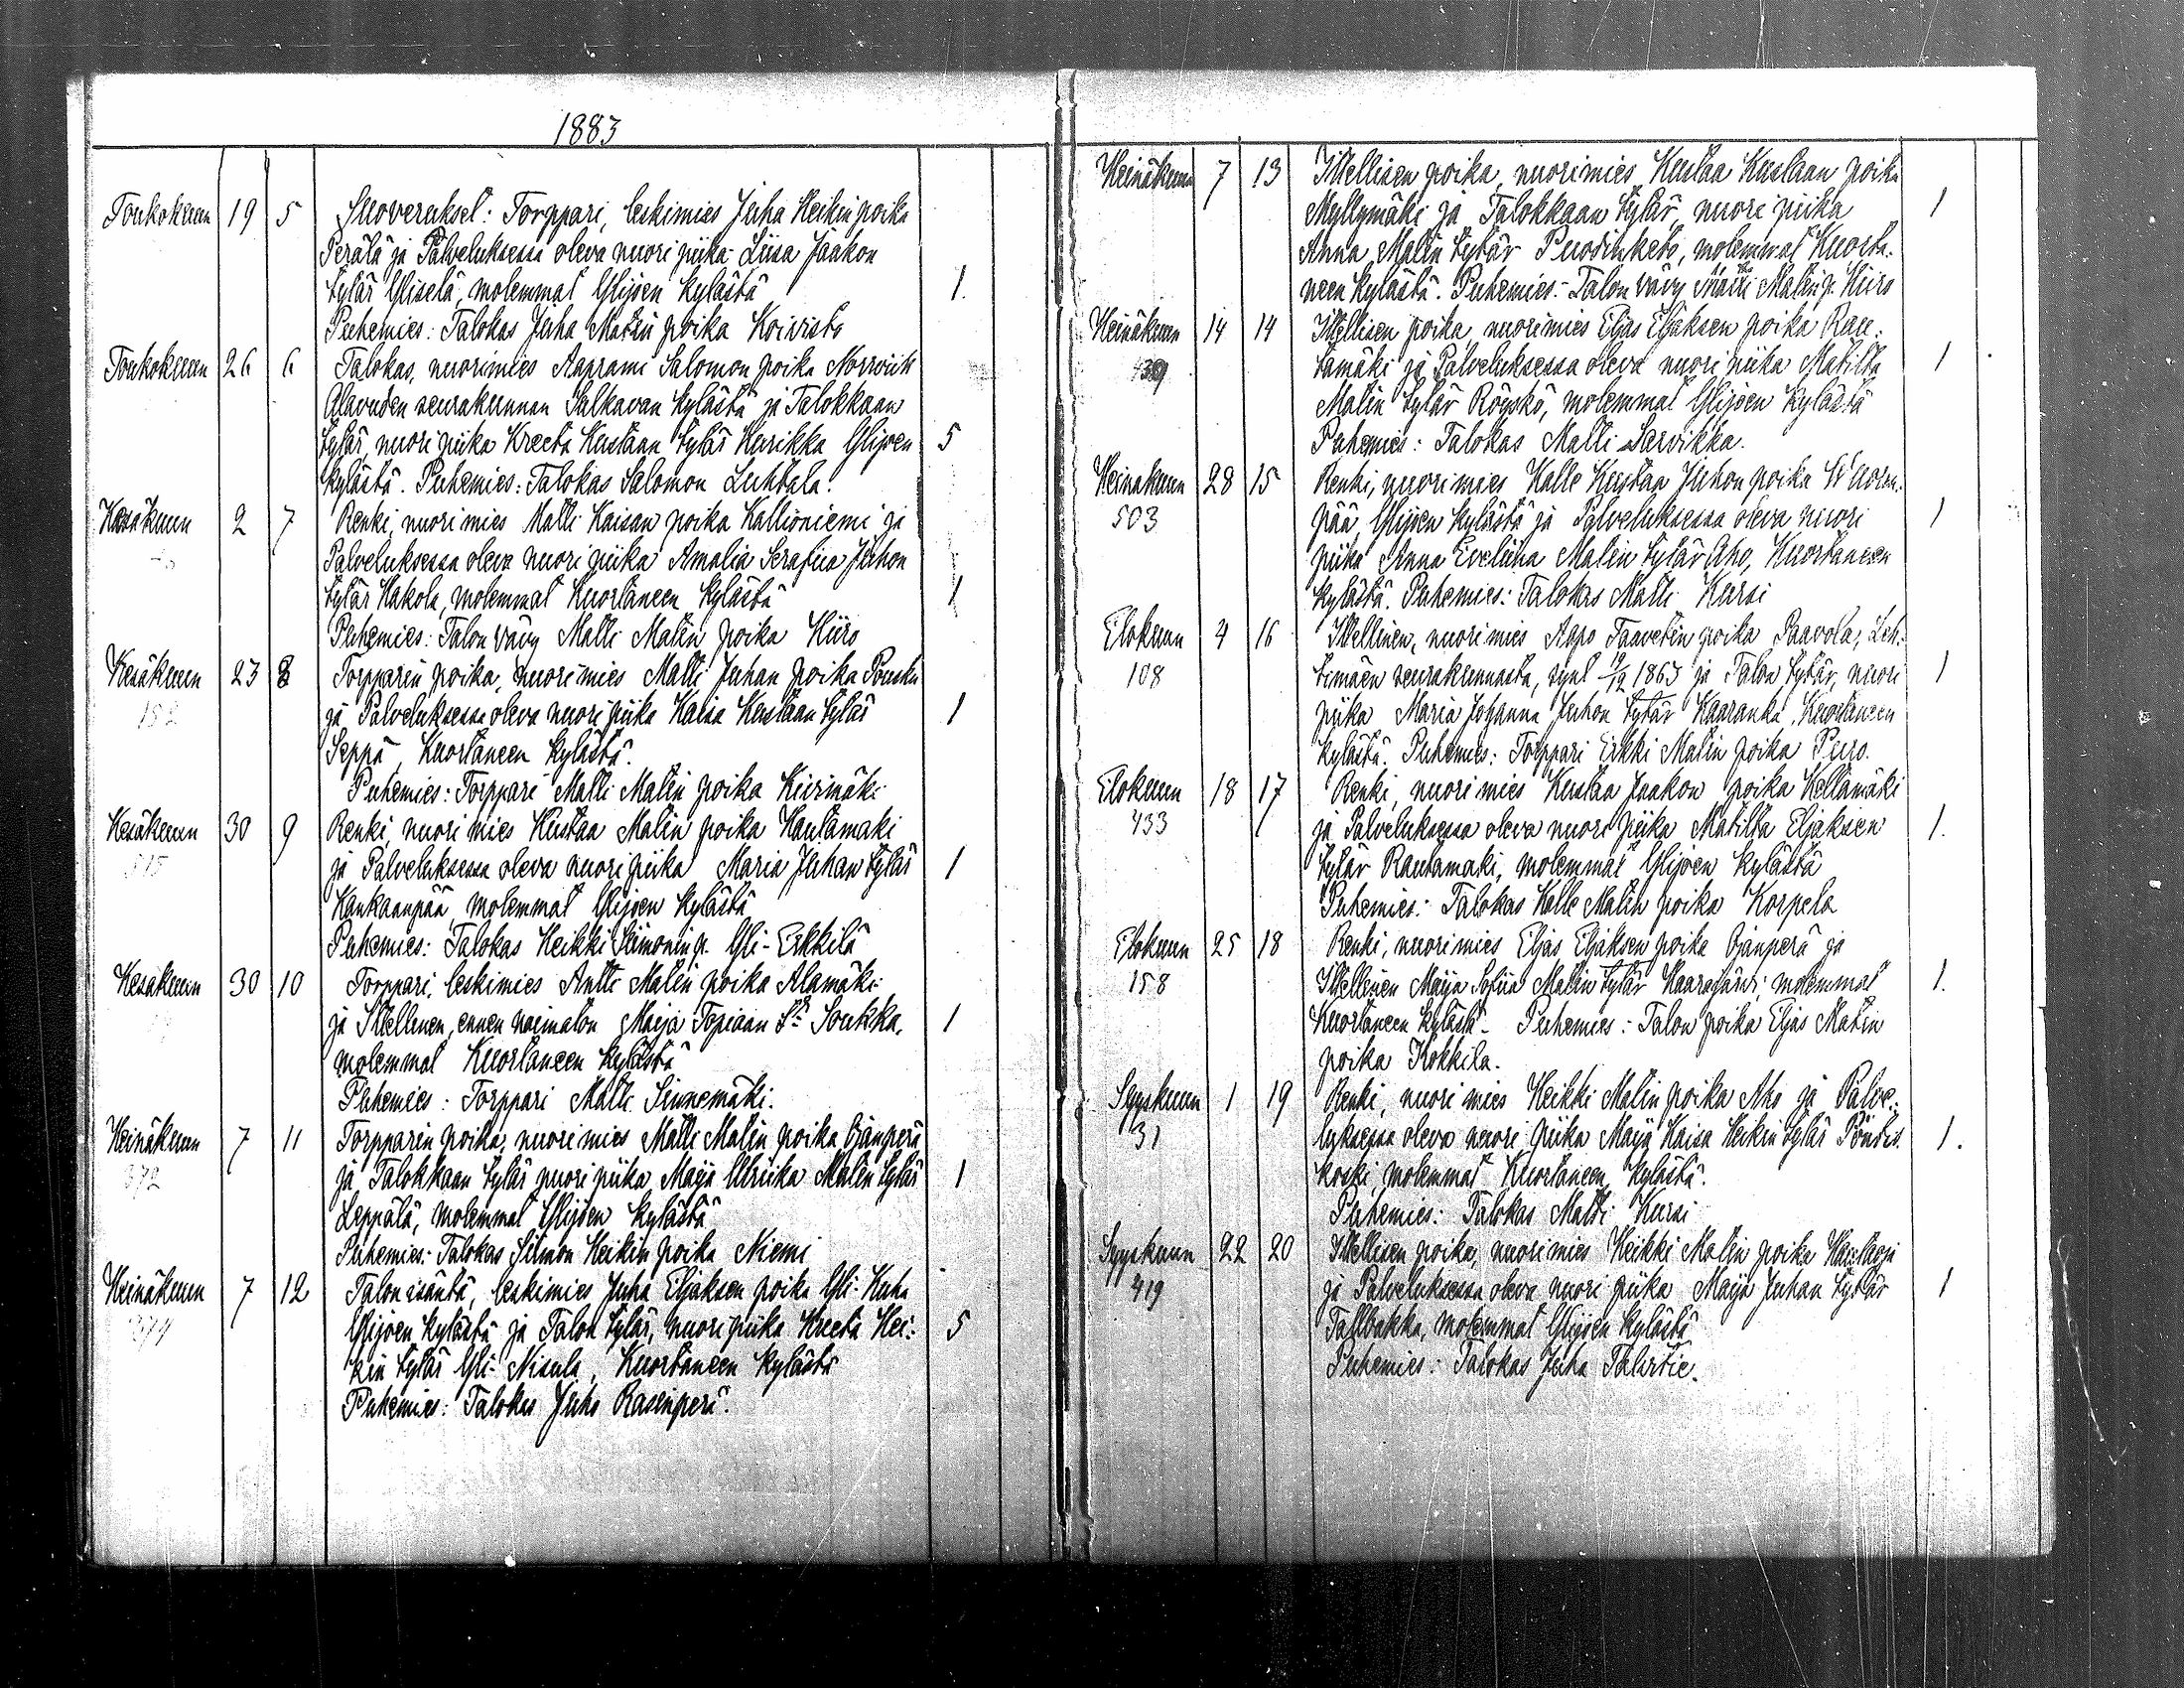 1883
Toukokuun 19 5 Suoverukset: Torppari, leskimies Juha Heikin poika
Perälä ja Palveluksessa oleva nuori piika Liisa Jaakon
tytär Yliselä, molemmat Ylijoen kylästä 1.
Puhemies: Talokas Juha Matin poika Koivisto
Toukokuun 26 6 Talokas, nuorimies Aaprami Salomon poika Norrvik
Alavuden seurakunnan Salkavan kylästä ja Talokkaan
tytär, nuori piika Kreeta Kustaan tytär Hurikka Ylijoen 5
kylästä. Puhemies: Talokas Salomon Luhtala.
Kesäkuun 2 7 Renki, nuorimies Matti Kaisan poika Kallioniemi ja
Palveluksessa oleva nuori piika Amalia Serafiia Juhon
tytär Hakola, molemmat Kuortaneen kylästä 1
Puhemies: Talon vävy Matti Matin poika Hiiro
Kesäkuun 23 8 Torpparin poika, nuorimies Matti Juhan poika Pouttu
182 ja Palveluksessa oleva nuori piika Kaisa Kustaan tytär 1
Seppä, Kuortaneen kylästä.
Puhemies: Torppari Matti Matin poika Kiirimäki
Kesäkuun 30 9 Renki, nuori mies Kustaa Matin poika Hautamäki
515 ja Palveluksessa oleva nuori piika Maria Juhan tytär 1
Kankaanpää, molemmat Ylijoen kylästä
Puhemies: Talokas Heikki Siimonin p. Yli-Erkkilä
Kesäkuun 30 10 Torppari, leskimies Antti Matin poika Alamäki
ja Itellinen, ennen naimaton Maija Topiaan tr Soukka, 1
molemmat Kuortaneen kylästä
Puhemies: Torppari Matti Sinnemäki.
Heinäkuun 7 11 Torpparin poika, nuori mies Matti Matin poika Ojanperä
372 ja Talokkaan tytär nuori piika Maija Ulriika Matin tytär 1
Leppälä, molemmat Ylijoen kylästä
Puhemies: Talokas Siimon Heikin poika Niemi
Heinäkuun 7 12 Talon isäntä, leskimies Juha Eljaksen poika Yli-Kuha
374 Ylijoen kylästä ja Talon tytär, nuori piika Kreeta Hei- 5
kin tytär Yli-Nisula, Kuortaneen kylästä
Puhemies: Talokas Juho Rasinperä.
Heinäkuun 7 13 Itellisen poika, nuorimies Kustaa Kustaan poika
Myllymäki ja Talokkaan tytär, nuori piika 1
Anna Matin tytär Puodinketo, molemmat Kuorta-
neen kylästä. Puhemies:- Talon vävy Matti Matin p. Hiiro
Heinäkuun 14 14 Itellisen poika, nuorimies Eljas Eljaksen poika Rau-
439 tamäki ja Palveluksessa oleva nuori piika Matilta 1
Matin tytär Röyskö, molemmat Ylijoen kylästä
Puhemies: Talokas Matti Sarvikka.
Heinäkuun 28 15 Renki, nuori mies Kalle Kustaa Juhon poika Wuoren-
503 pää, Ylijoen kylästä ja Palveluksessa oleva nuori 1
piika Anna Eveliina Matin tytär Aho, Kuortaneen
kylästä. Puhemies: Talokas Matti Kursi
Elokuun 4 16 Itellinen, nuori mies Aapo Taavetin poika Paavola, Leh-
108 timäen seurakunnasta, synt 19/12 1863 ja Talon tytär, nuori 1
piika Maria Johanna Juhon tytär Kaaranka, Kuortaneen
kylästä. Puhemies: Torppari Erkki Matin poika Puro.
Elokuun 18 17 Renki, nuori mies Kustaa Jaakon poika Hellämäki
433 ja Palveluksessa oleva nuori piika Matilta Eljaksen 1.
tytär Rautamäki, molemmat Ylijoen kylästä
Puhemies: Talokas Kalle Matin poika Korpela
Elokuun 25 18 Renki, nuorimies Eljas Eljaksen poika Ojanperä ja
158 Itellinen Maija Sofiia Matin tytär Haarajärvi, molemmat 1.
Kuortaneen kylästä. Puhemies: Talon poika Eljas Matin
poika Kokkila.
Syyskuun 1 19 Renki, nuori mies Heikki Matin poika Aho ja Palve-
31 luksessa oleva nuori piika Maija Kaisa Heikin tytär 1.
koski, molemmat Kuortaneen kylästä.
Puhemies: Talokas Matti Kursi
Syyskuun 22 20 Itellisen poika, nuorimies Heikki Matin poika
419 ja Palveluksessa oleva nuori piika Maija Juhan tytär 1
Tallbakka, molemmat Ylijoen kylästä
Puhemies: Talokas Juha Talvitie.